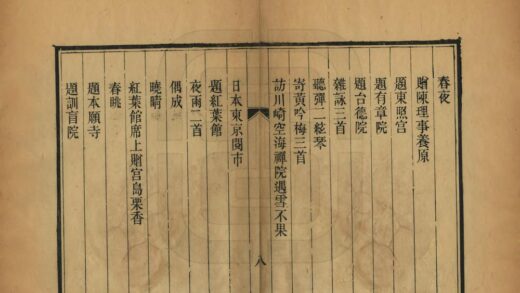 春夜
贈陳理事養原
題東照宮
題有章院
題台德院
雜詠三首
聽彈二絃琴
寄黃吟梅三首
訪川崎空海禪院遇雪不果
八
日本東京閱市
題紅葉館
夜雨二首
偶成
曉晴
紅葉館席上贈宮島栗香
春眺
題本願寺
題訓盲院